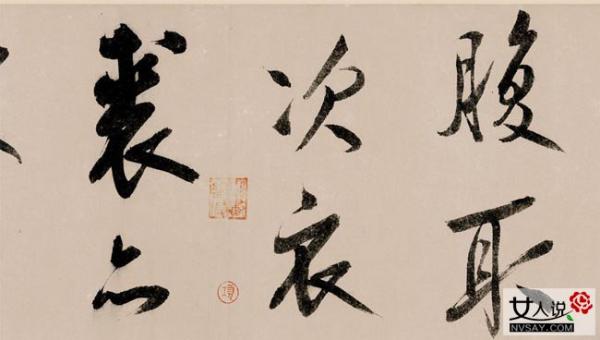 腹耳
次衣
裘亦
女人说
NVSAY.COM